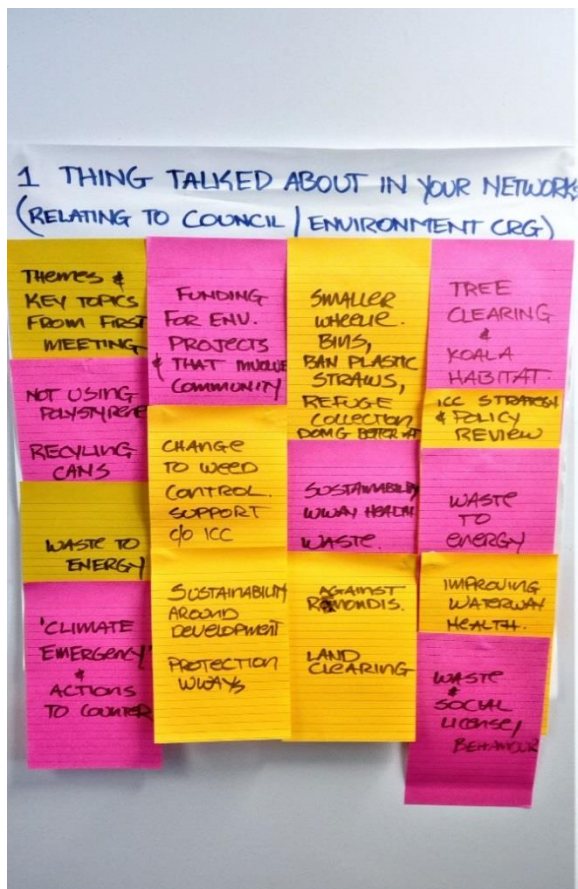 1 THING TALKED ABOUT IN YOUR NETWORKS
(RELATING TO COUNCIL / ENVIRONMENT CRG)
THEMES &
KEY TOPICS
FROM FIRST
MEETING
NOT USING
POLYSTYRENE
RECYLING
CANS
WASTE TO
ENERGY
'CLIMATE
EMERGENCY'
&
ACTIONS
TO COUNTER
FUNDING
FOR ENV.
PROJECTS
& THAT INVOLVE
COMMUNITY
CHANGE
TO WEED
CONTROL.
SUPPORT
c/o ICC
SUSTAINABILITY
AROUND
DEVELOPMENT
PROTECTION
WWAYS
SMALLER
WHEELIE.
BINS,
BAN PLASTIC
STRAWS,
REFUGE
COLLECTION
DOMG BETTER AT
SUSTAINABILITY
WWAY HEALTH
WASTE.
AGAINST
REMONDIS.
LAND
CLEARING
TREE
CLEARING
&
KOALA
HABITAT.
ICC STRATEGY
& POLICY
REVIEW
WASTE
TO
ENERGY
IMPROVING
WATERWAY
HEALTH.
WASTE
&
SOCIAL
LICENSE/
BEHAVIOUR